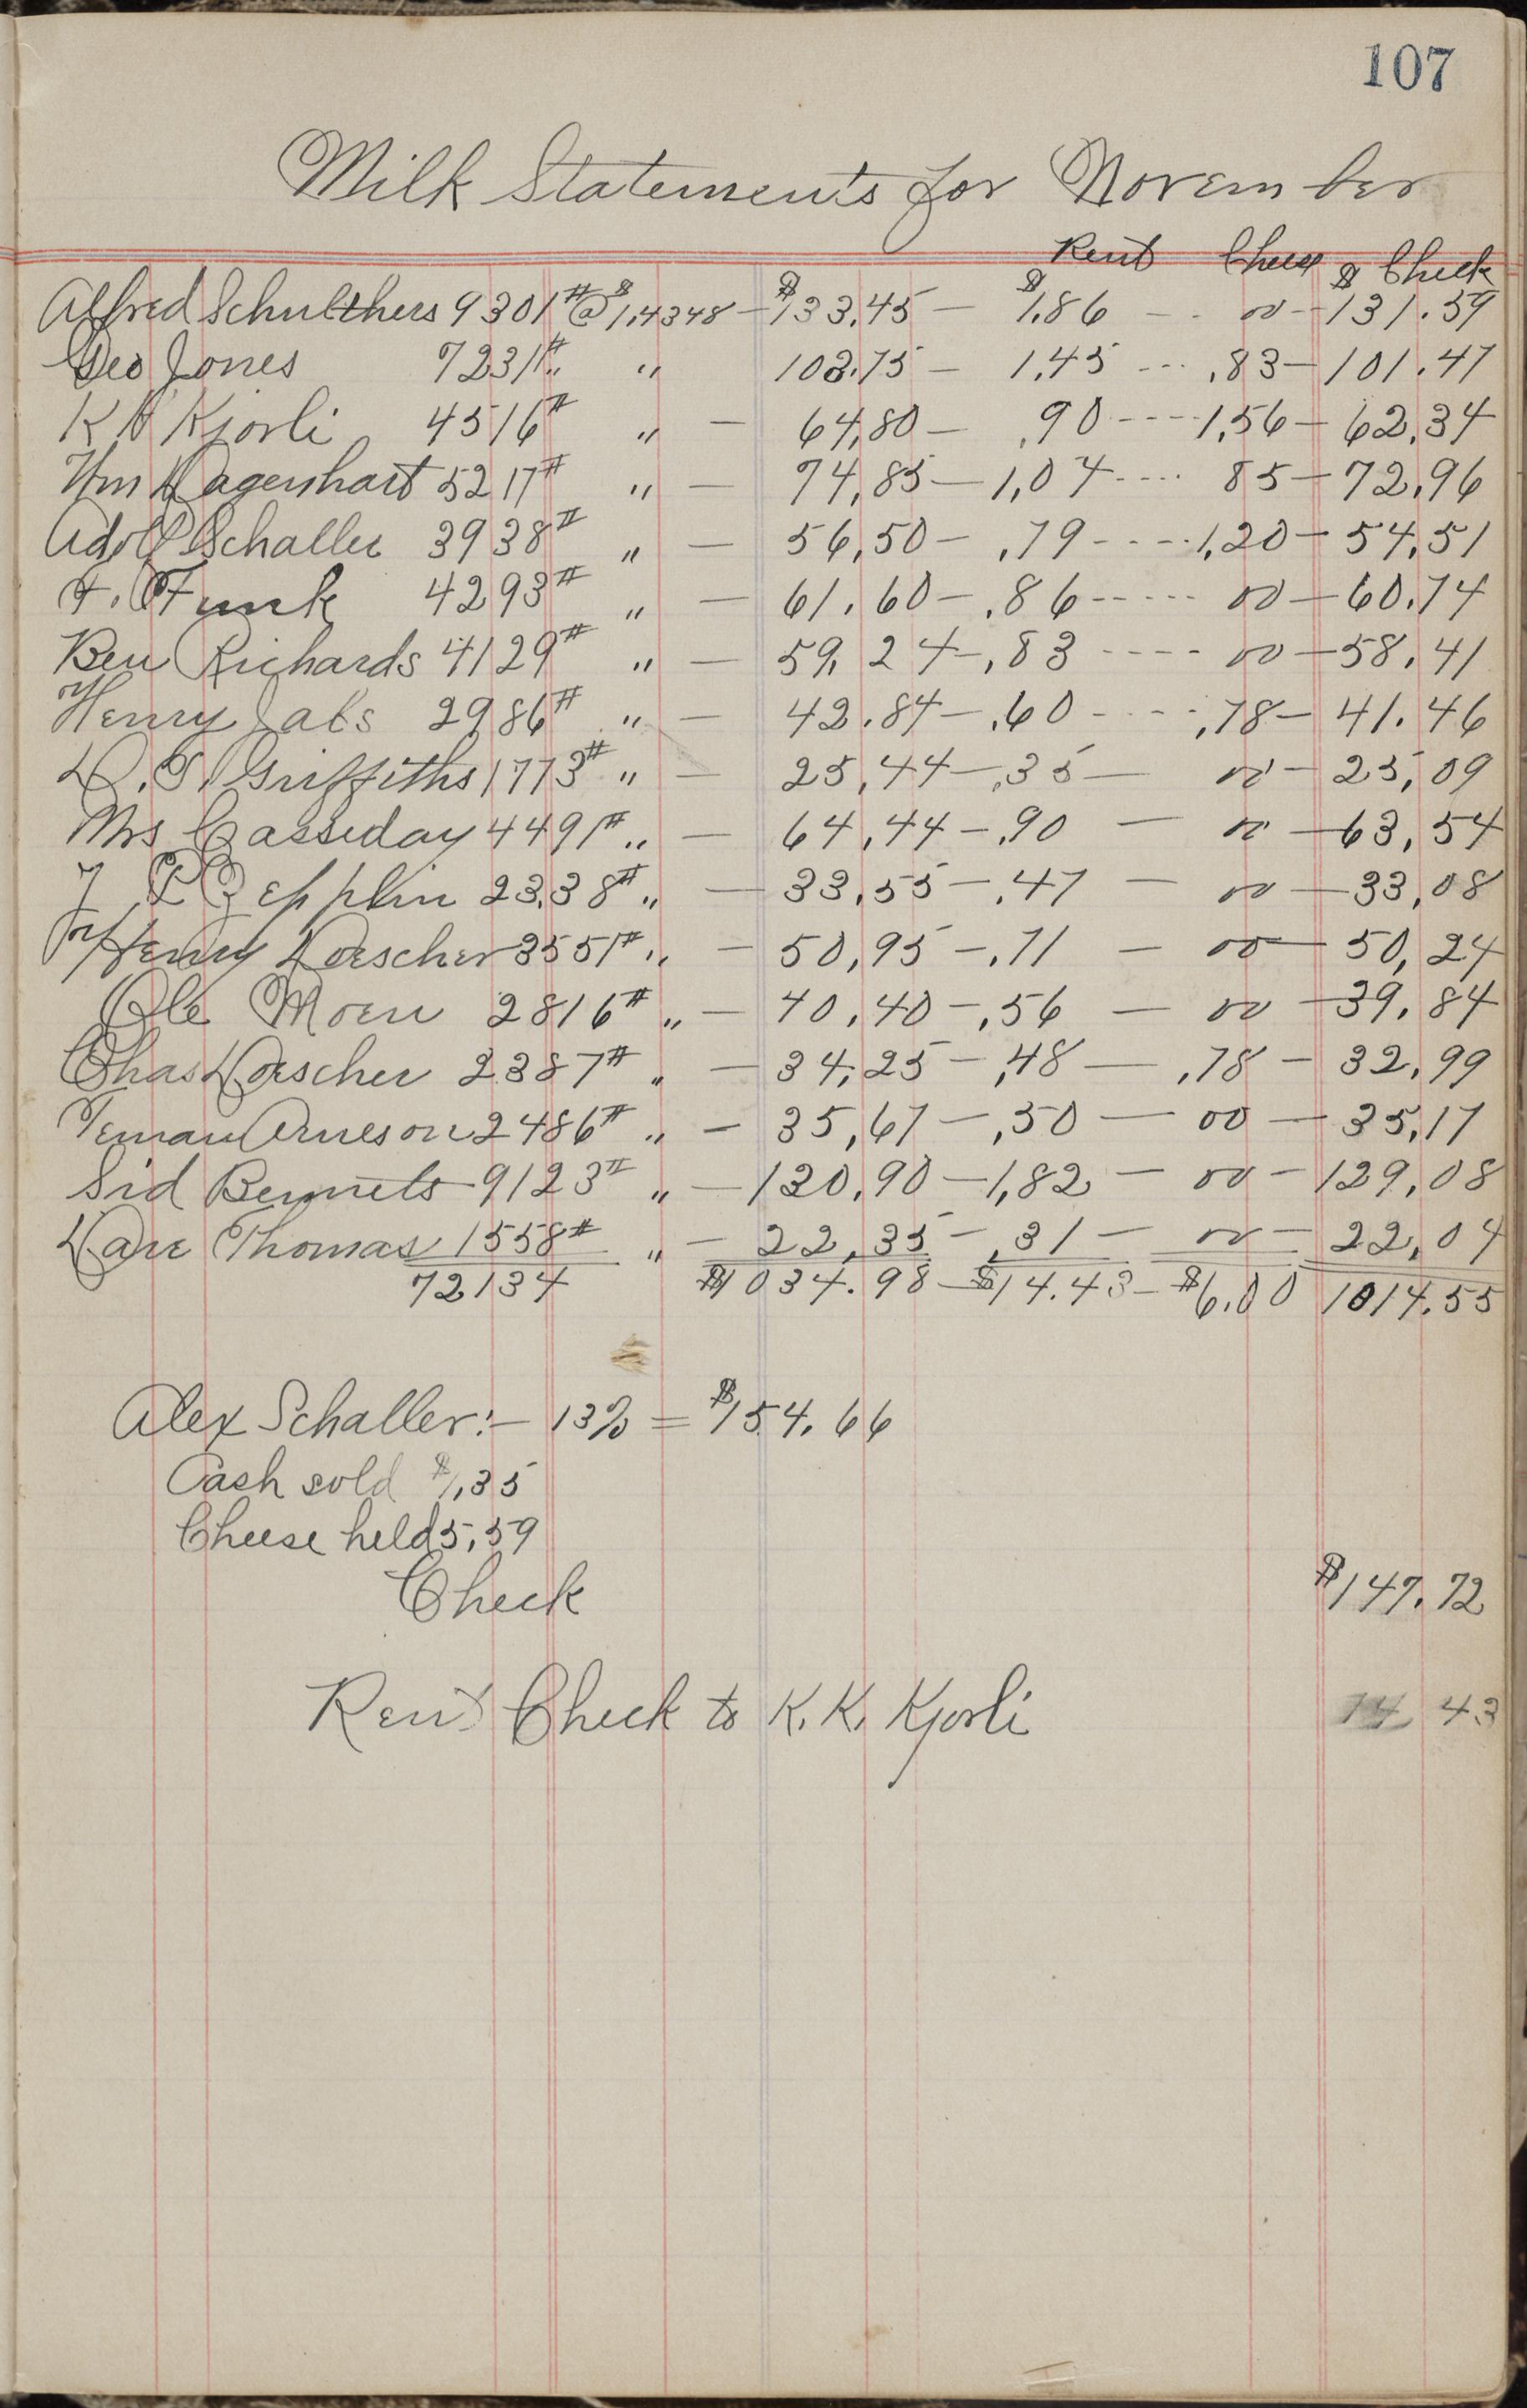 107
Milk Statements for November
Rent Cheese $ Check
Alfred Schulthers 9301# @ $1,4348 - $133,45 - $1,86 - - 00 - 131.59
Geo Jones 7231# " " 103,75 - 1,45 --- ,83 - 101.47
K K Kjorli 4516# " - 64,80 - ,90 ---- 1,56 - 62,34
Wm Dagenhart 5217# " - 74,85 - 1,04 ---- 85 - 72,96
Adolf Schaller 3938# " - 56,50 - ,79 ---- 1,20 - 54,51
F. Funk 4293# " - 61.60 - ,86 ----- 00 - 60.74
Ben Richards 4129# " - 59,24 - ,83 ---- 00 - 58.41
Henry Jabs 2986# " - 42.84 - ,60 ---- ,78 - 41.46
D. T. Griffiths 1773# " - 25,44 - ,35 - 00 - 25,09
Mrs Casseday 4491# " - 64,44 - ,90 - 00 - 63,54
Zepplin 2338# " - 33,55 - ,47 - 00 - 33,08
Henry Doescher 3551# " - 50,95 - ,71 - 00 - 50,24
Ole Moen 2816# " - 40,40 - ,56 - 00 - 39.84
Chas Doescher 2387# " - 34,25 - ,48 - ,78 - 32,99
Teman Arneson 2486# " - 35,67 - ,50 - 00 - 35,17
Sid Bennets 9123# " - 130,90 - 1,82 - 00 - 129,08
Dave Thomas 1558# " - 22,35 - ,31 - 00 - 22,04
72134 $1034.98 - $14.43 - $6.00 1014.55
Alex Schaller:- 13% = $154.66
Cash sold $1,35
Cheese held 5,59
Check $147.72
Rent Check to K. K. Kjorli 14 43